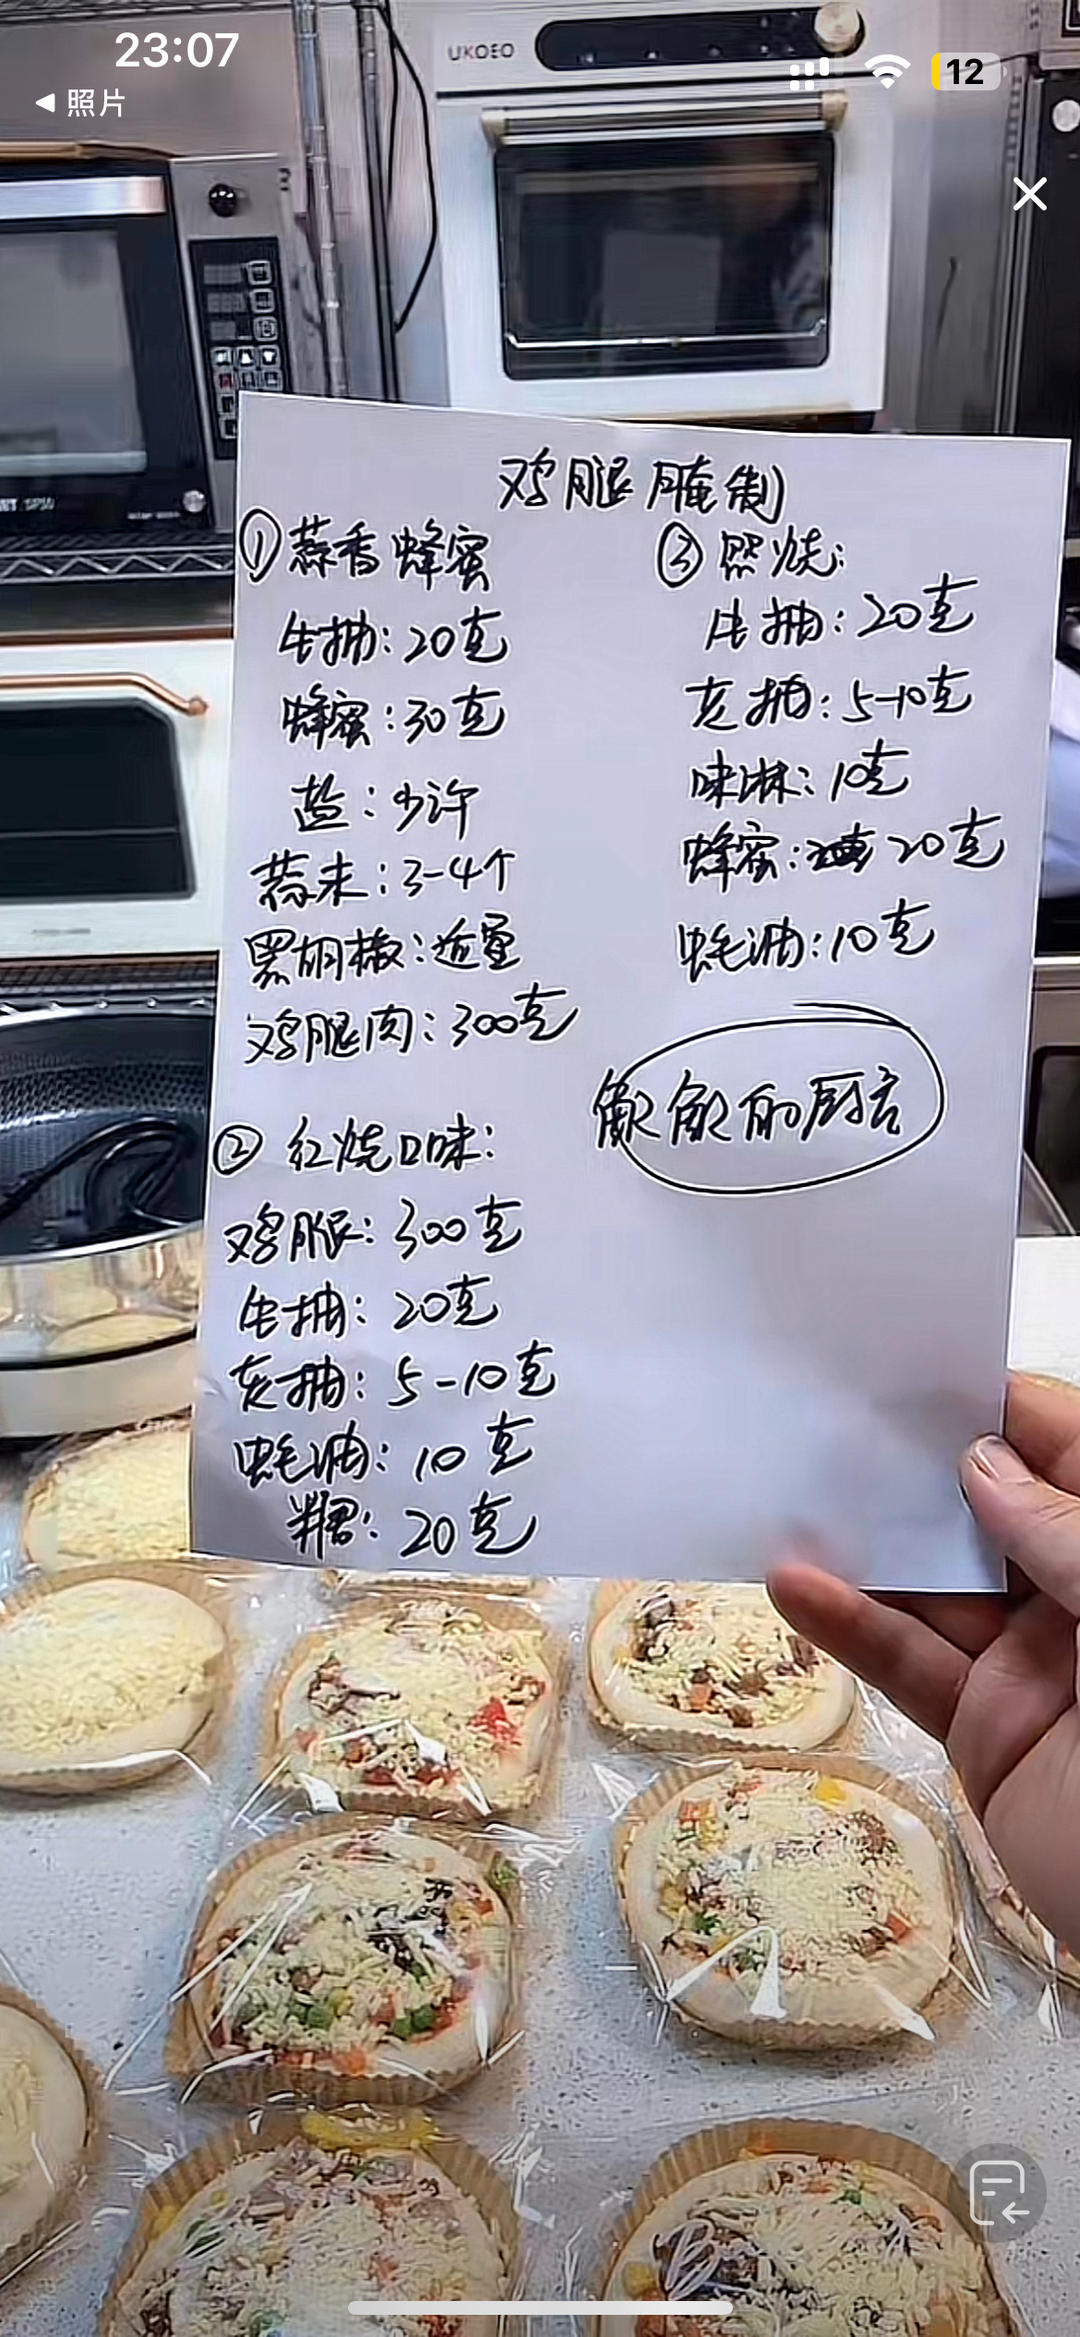 23:07
12
照片
UKOEO
鸡腿腌制
①蒜香蜂蜜
生抽：20克
蜂蜜：30克
盐：少许
蒜末：3-4个
黑胡椒：适量
鸡腿肉：300克
②红烧口味：
鸡腿：300克
生抽：20克
老抽：5-10克
蚝油：10克
糖：20克
③照烧：
生抽：20克
老抽：5-10克
味淋：10克
蜂蜜：20克
蚝油：10克
的厨房